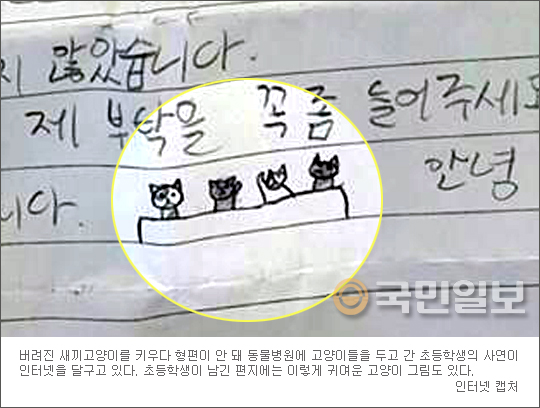 지 않았습니다.
제 부탁을 꼭좀 들어주세요
니다. 안녕
국민일보
버려진 새끼고양이를 키우다 형편이 안 돼 동물병원에 고양이들을 두고 간 초등학생의 사연이
인터넷을 달구고 있다. 초등학생이 남긴 편지에는 이렇게 귀여운 고양이 그림도 있다.
인터넷 캡처